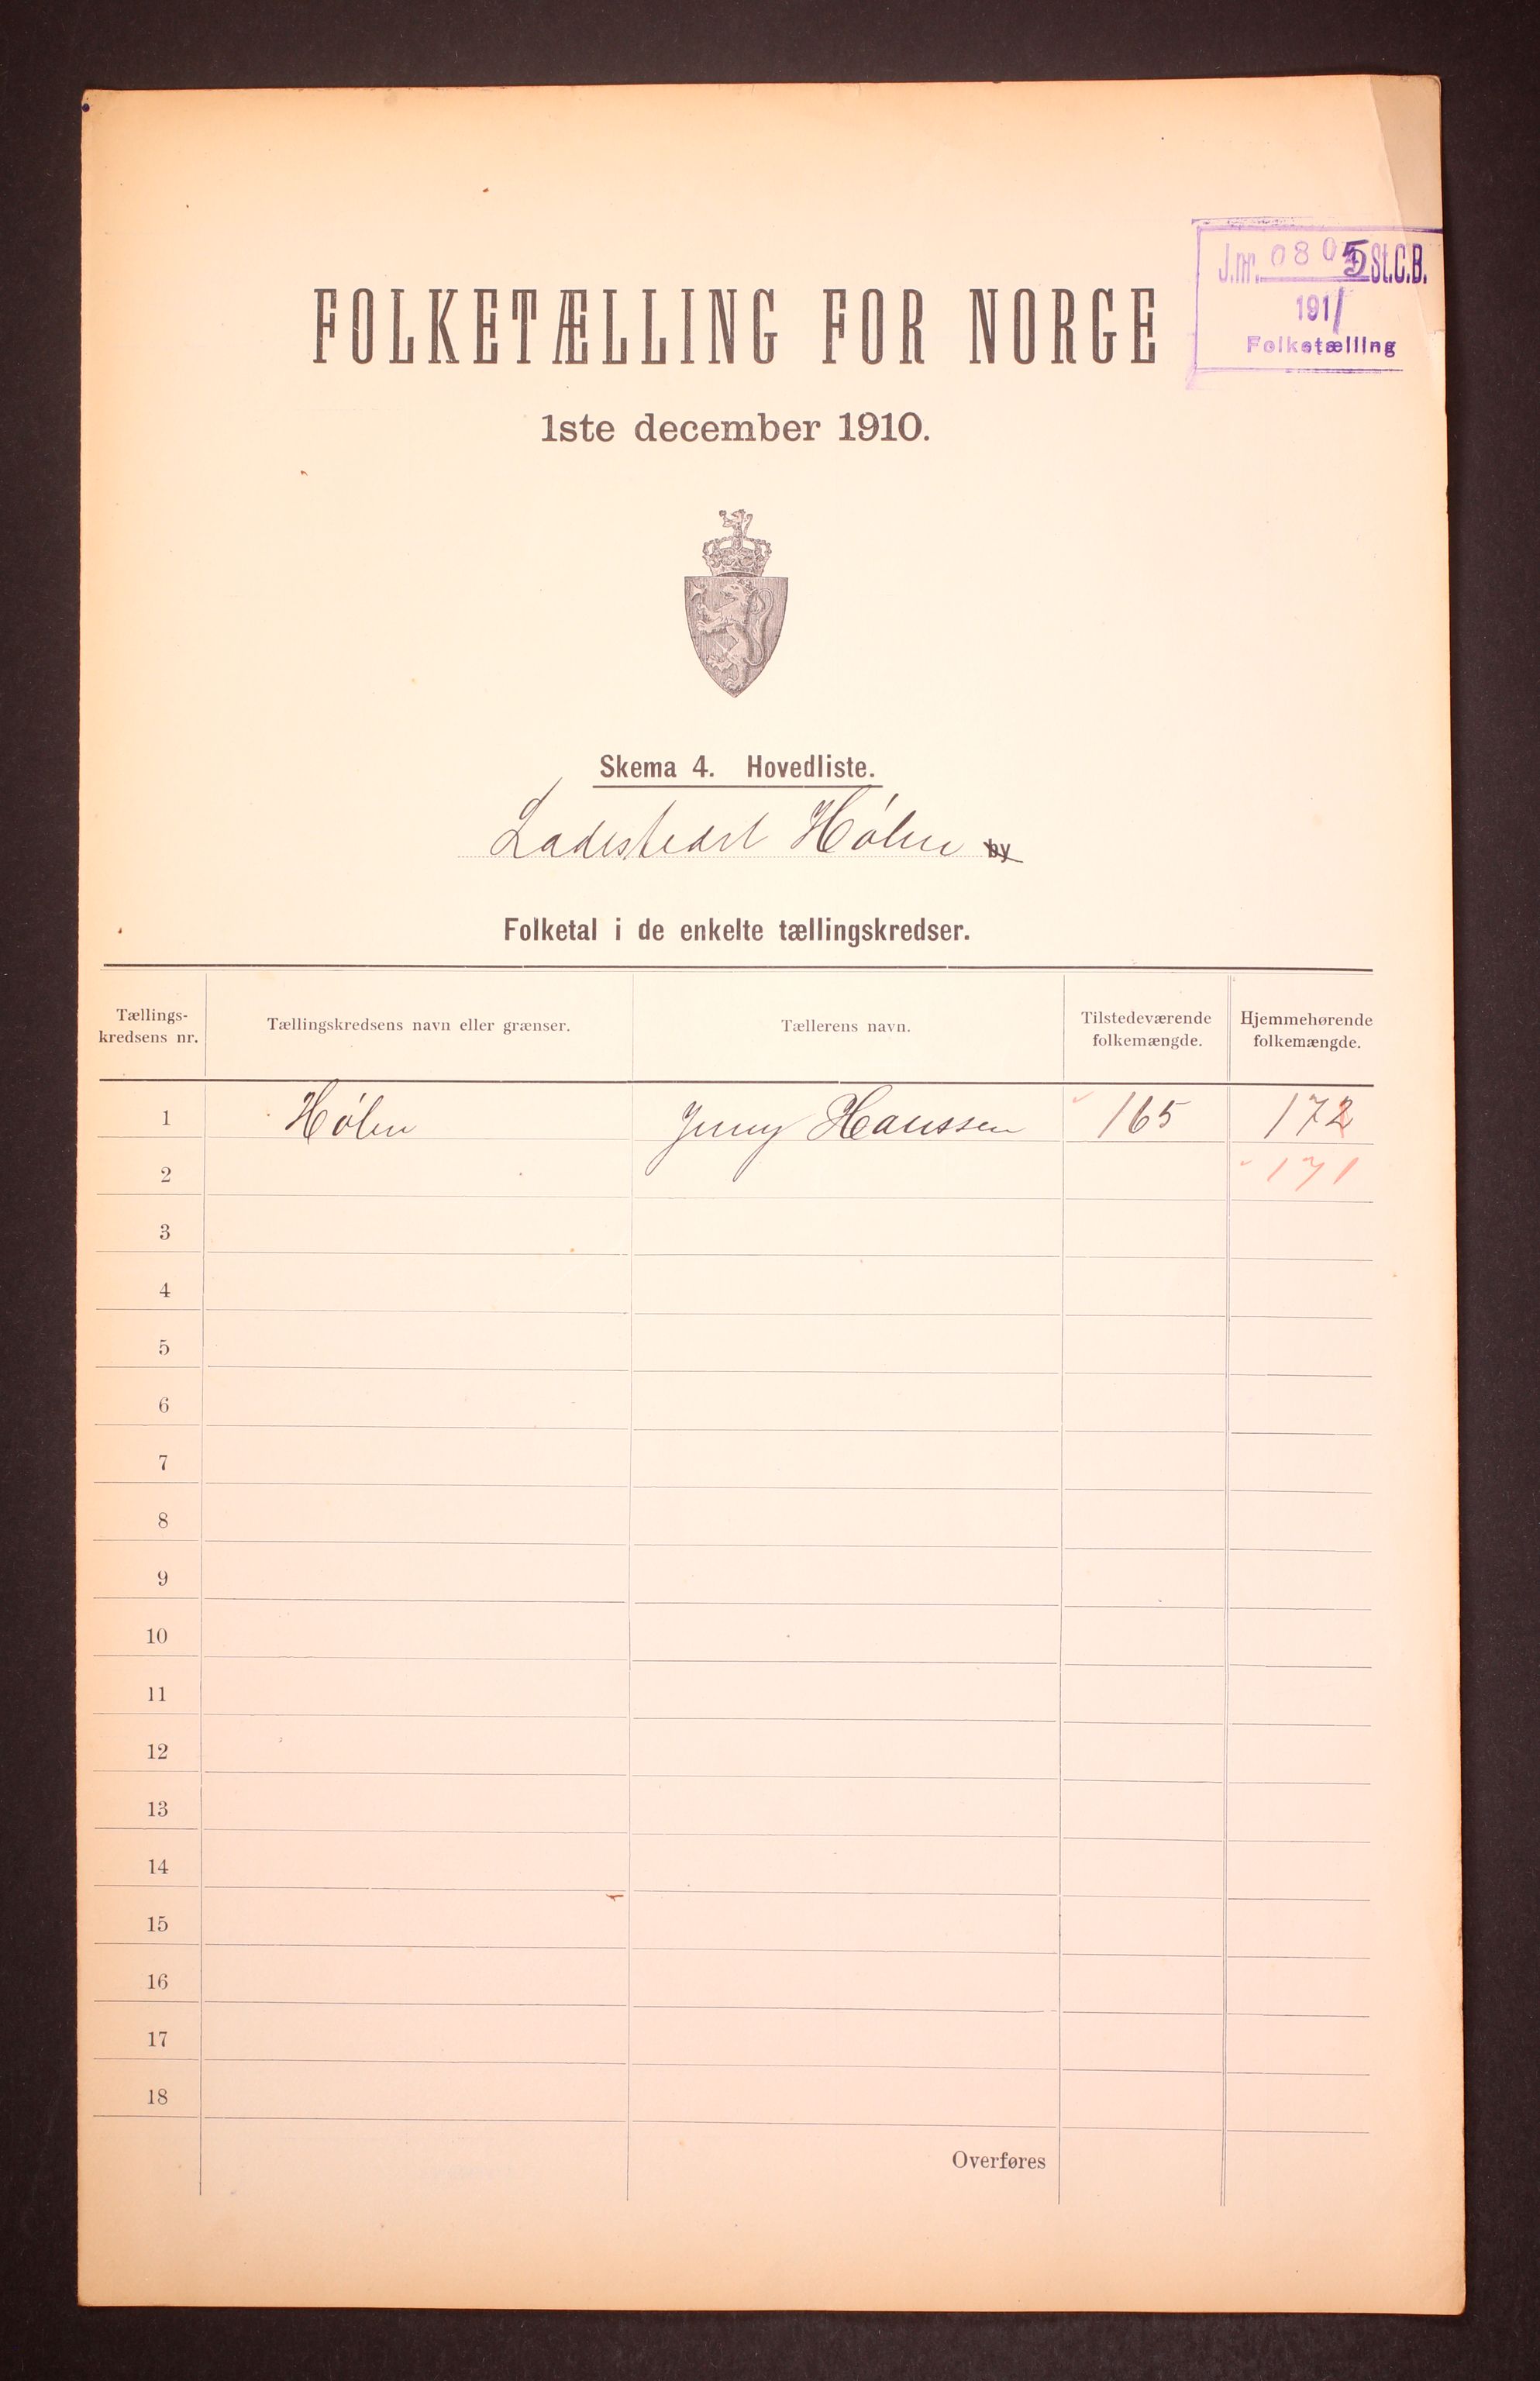 J.nr. 0805 St.C.B.
1911
Folketælling
FOLKETÆLLING FOR NORGE
1ste december 1910.
Skema 4. Hovedliste.
Ladestedet Hølen by
Folketal i de enkelte tællingskredser.
Tællings-
kredsens nr.
Tællingskredsens navn eller grænser.
Tællerens navn.
Tilstedeværende
folkemængde.
Hjemmehørende
folkemængde.
1 Hølen Jenny Hanssen 165 172
2 171
3
4
5
6
7
8
9
10
11
12
13
14
15
16
17
18
Overføres